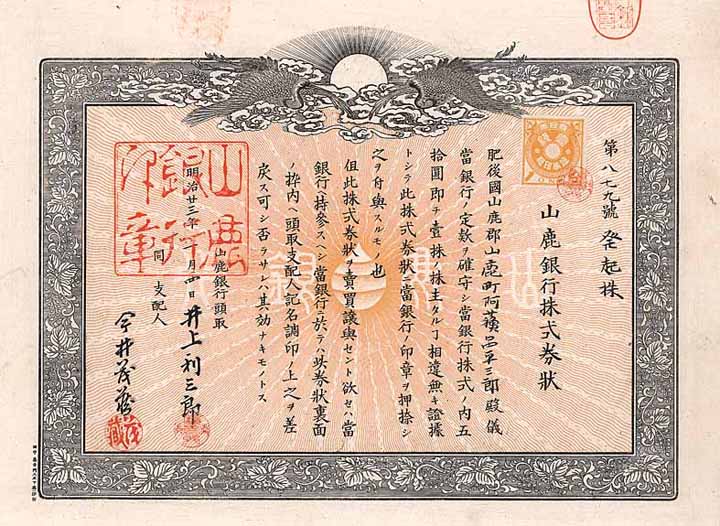 第八七九號 發起株
山鹿銀行株式券狀
肥後國山鹿郡山鹿町阿蘓品平三郎殿儀
當銀行ノ定欵ヲ確守シ當銀行株式ノ内五
拾圓即チ壹株ノ株主タルヿ相違無キ證據
トシテ此株式券狀ニ當銀行ノ印章ヲ押捺シ
之ヲ付與スルモノ也
但此株式券狀ヲ賣買讓與セント欲セハ當
銀行ヘ持參スヘシ當銀行ニ於テハ此券狀裏面
ノ枠内ヘ頭取支配人記名調印ノ上之ヲ差
戻ス可シ否ラサレハ其効ナキモノトス
山鹿銀行頭取 井上利三郎
明治廿三年 月四日
同 支配人 今井茂藏
山鹿銀行印章
山鹿銀行
茂藏